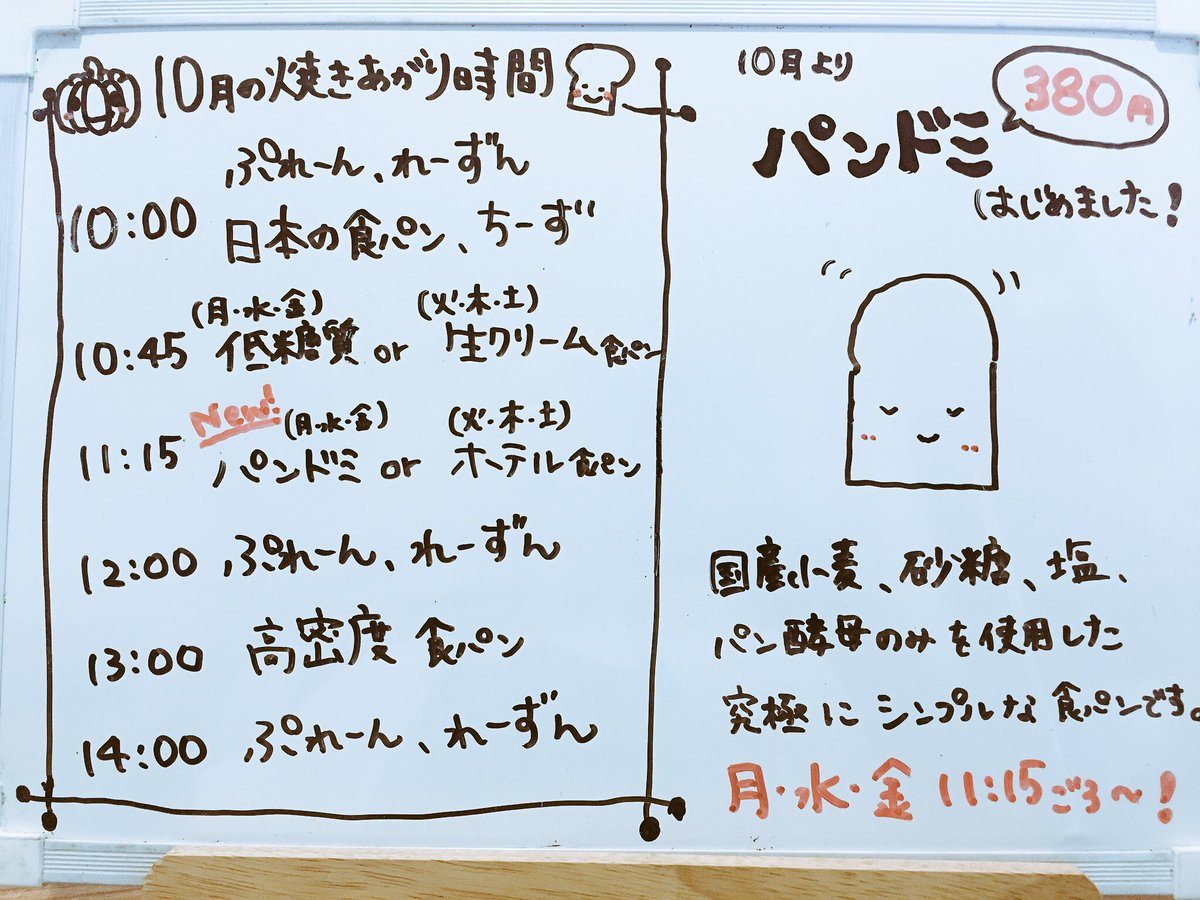 10月の焼きあがり時間
ぷれーん、れーずん
10:00 日本の食パン、ちーず
(月・水・金) (火・木・土)
10:45 低糖質 or 生クリーム食パン
New! (月・水・金) (火・木・土)
11:15 パンドミ or ホテル食パン
12:00 ぷれーん、れーずん
13:00 高密度 食パン
14:00 ぷれーん、れーずん
10月より
380円
パンドミ
はじめました!
国産小麦、砂糖、塩、
パン酵母のみを使用した
究極にシンプルな食パンです。
月・水・金 11:15ごろ〜!